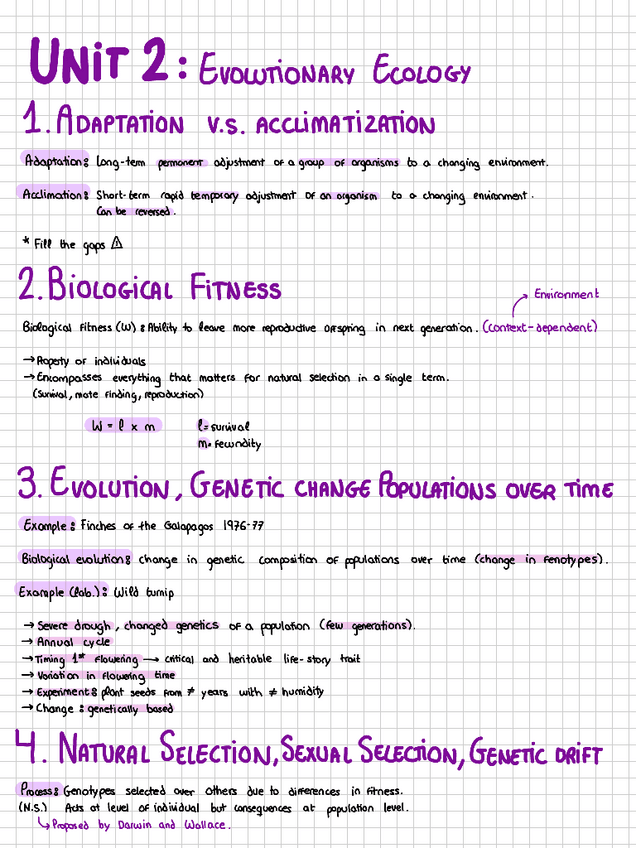 UNIT 2: EVOLUTIONARY ECOLOGY
1. ADAPTATION V.S. ACCLIMATIZATION
Adaptation: Long-term permanent adjustment of a group of organisms to a changing environment.
Acclimation: Short-term rapid temporary adjustment of an organism to a changing environment.
Can be reversed.
* Fill the gaps ⚠
2. BIOLOGICAL FITNESS
Environment
Biological Fitness (W): Ability to leave more reproductive offspring in next generation. (context-dependent)
→ Property of individuals
→ Encompasses everything that matters for natural selection in a single term.
(Survival, mate finding, reproduction)
W = l x m l = survival
m = fecundity
3. EVOLUTION, GENETIC CHANGE POPULATIONS OVER TIME
Example: Finches of the Galapagos 1976-77
Biological evolution: change in genetic composition of populations over time (change in fenotypes).
Example (lab.): Wild turnip
→ Severe drough, changed genetics of a population (few generations).
→ Annual cycle
→ Timing 1st flowering → critical and heritable life-story trait
→ Variation in flowering time
→ Experiment: plant seeds from ≠ years with ≠ humidity
→ Change: genetically based
4. NATURAL SELECTION, SEXUAL SELECTION, GENETIC DRIFT
Process: Genotypes selected over others due to differences in fitness.
(N.S.) Acts at level of individual but conseqences at population level.
↳ Proposed by Darwin and Wallace.